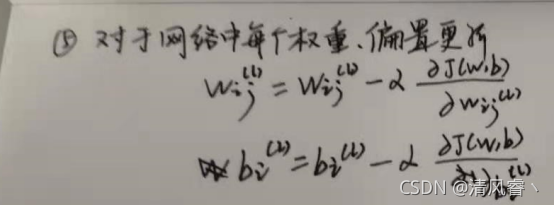 ⑤ 对于网络中每个权重、偏置更新
Wij^(l) = Wij^(l) - α ∂J(W,b) / ∂Wij^(l)
bi^(l) = bi^(l) - α ∂J(W,b) / ∂bi^(l)
CSDN @清风睿丶